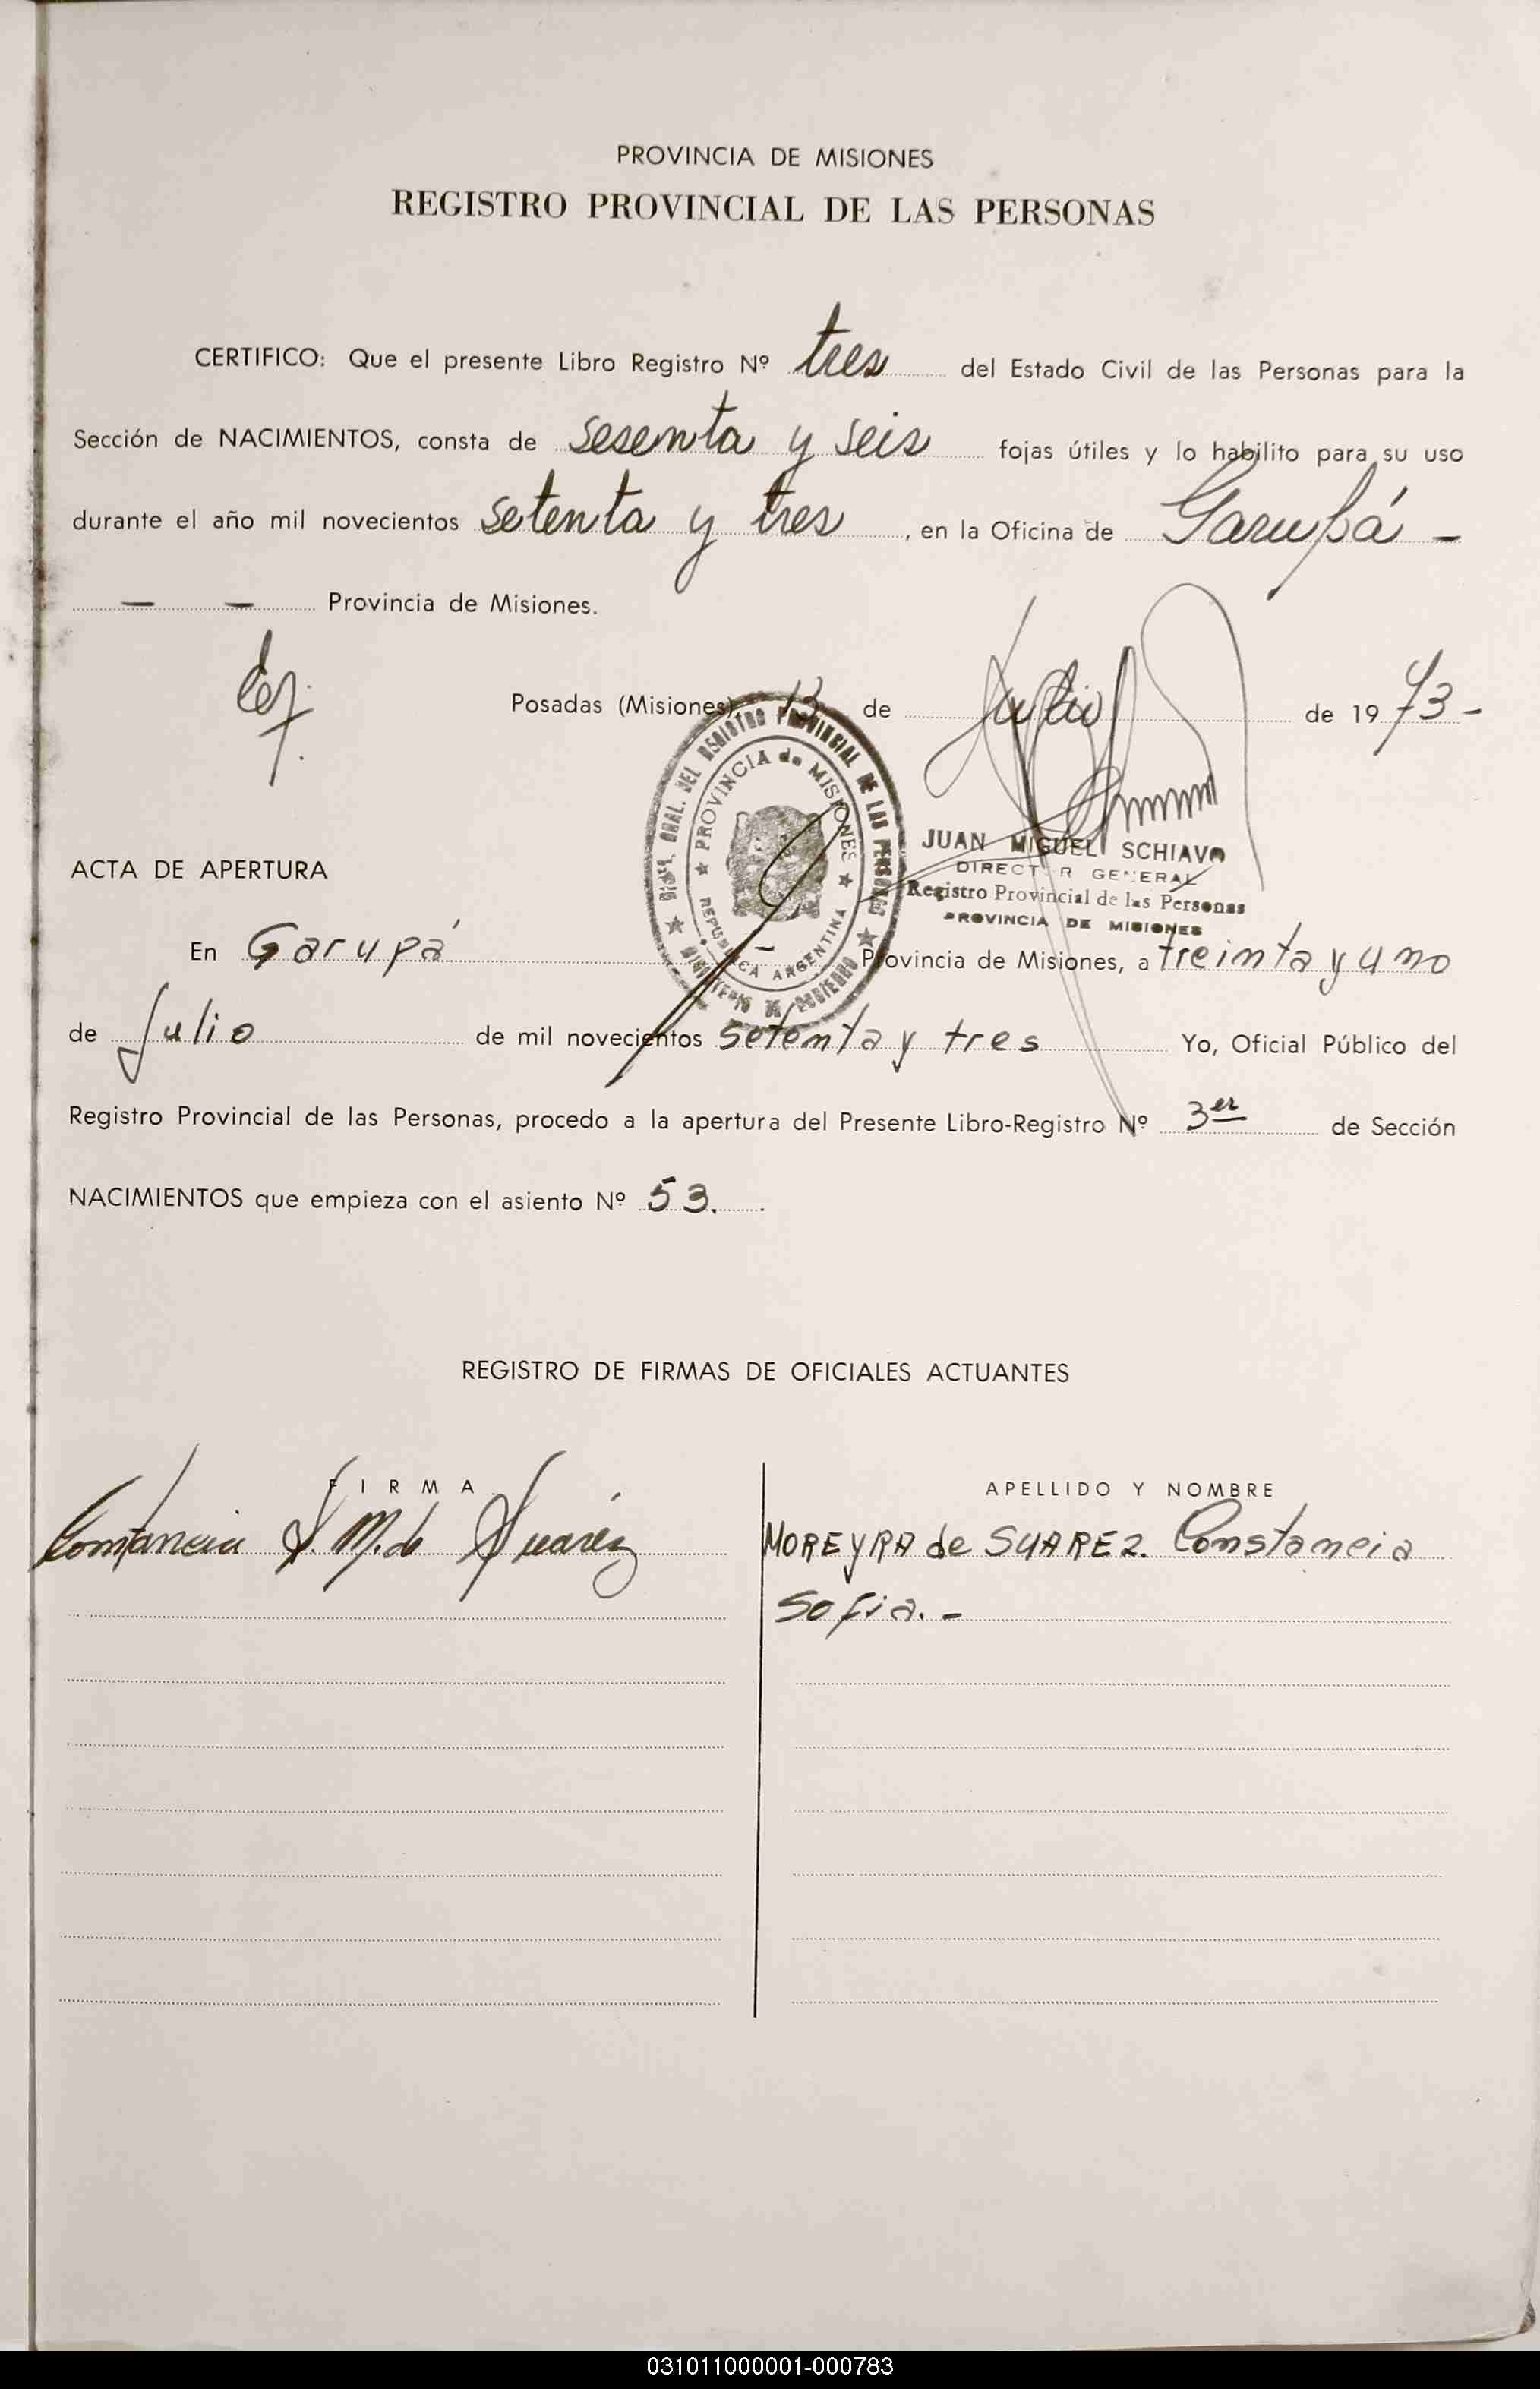 PROVINCIA DE MISIONES
REGISTRO PROVINCIAL DE LAS PERSONAS
CERTIFICO: Que el presente Libro Registro Nº tres del Estado Civil de las Personas para la
Sección de NACIMIENTOS, consta de sesenta y seis fojas útiles y lo habilito para su uso
durante el año mil novecientos setenta y tres, en la Oficina de Garupá -
- - Provincia de Misiones.
Posadas (Misiones), 13 de Julio de 1973-
DIREC. GRAL. DEL REGISTRO PROVINCIAL DE LAS PERSONAS
MINISTERIO DE GOBIERNO
PROVINCIA de MISIONES
REPUBLICA ARGENTINA
JUAN MIGUEL SCHIAVO
DIRECTOR GENERAL
Registro Provincial de las Personas
PROVINCIA DE MISIONES
ACTA DE APERTURA
En Garupá - Provincia de Misiones, a treinta y uno
de Julio de mil novecientos setenta y tres Yo, Oficial Público del
Registro Provincial de las Personas, procedo a la apertura del Presente Libro-Registro Nº 3er de Sección
NACIMIENTOS que empieza con el asiento Nº 53.
REGISTRO DE FIRMAS DE OFICIALES ACTUANTES
FIRMA APELLIDO Y NOMBRE
Constancia S. M. de Suaréz MOREYRA de SUAREZ. Constancia
Sofia. -
031011000001-000783